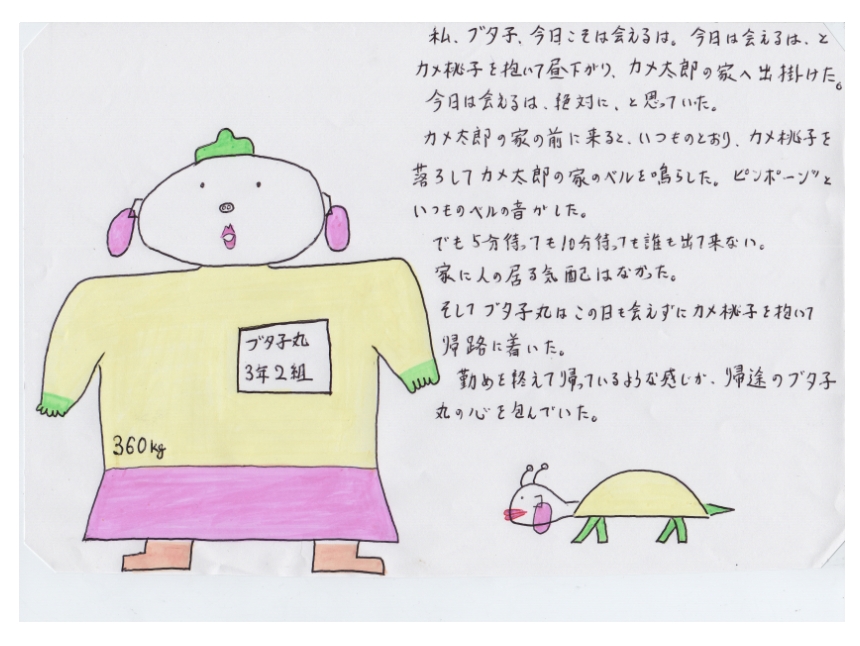 私、ブタ子、今日こそは会えるは。今日は会えるは、と
カメ桃子を抱いて昼下がり、カメ太郎の家へ出掛けた。
今日は会えるは、絶対に、と思っていた。
カメ太郎の家の前に来ると、いつものとおり、カメ桃子を
落ろしてカメ太郎の家のベルを鳴らした。ピンポーンッと
いつものベルの音がした。
でも5分待っても10分待っても誰も出て来ない。
家に人の居る気配はなかった。
そしてブタ子丸はこの日も会えずにカメ桃子を抱いて
帰路に着いた。
勤めを終えて帰っているような感じが、帰途のブタ子
丸の心を包んでいた。
ブタ子丸
3年2組
360kg